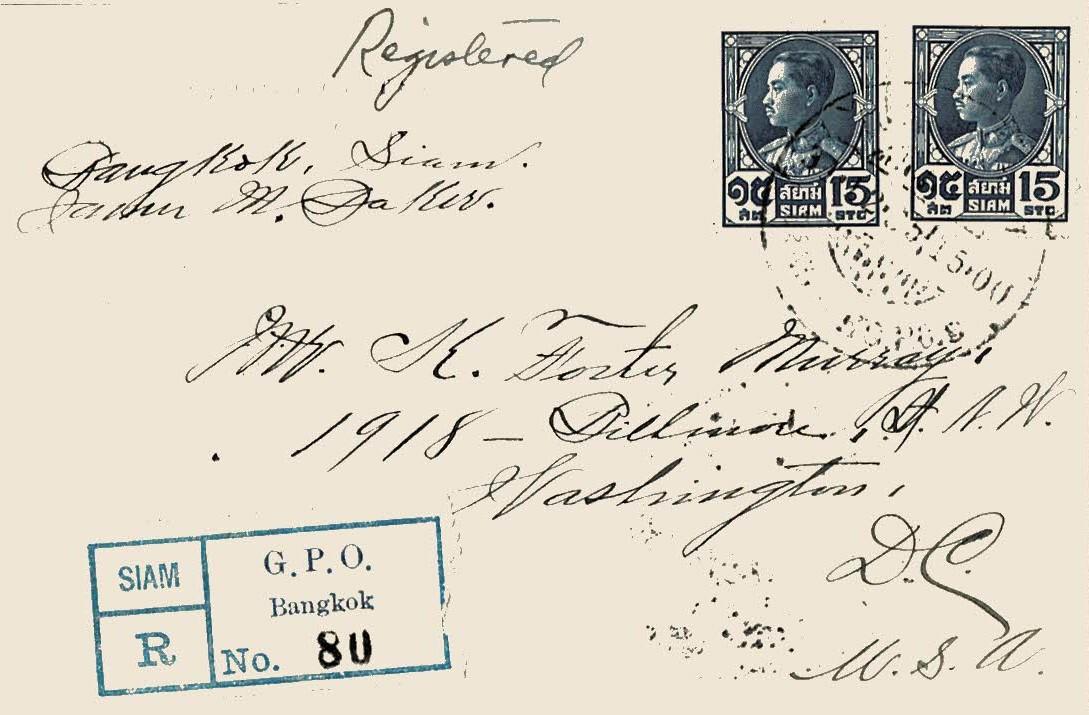 Registered
Bangkok, Siam.
M. Baker.
๑๕ สยาม 15
SIAM STG
๑๕ สยาม 15
SIAM STG
15·00
Mr. K. Foster Murray,
1918 – Biltmore, St. N. W.
Washington,
D.C.
U. S. A.
SIAM
R
G. P. O.
Bangkok
No. 80